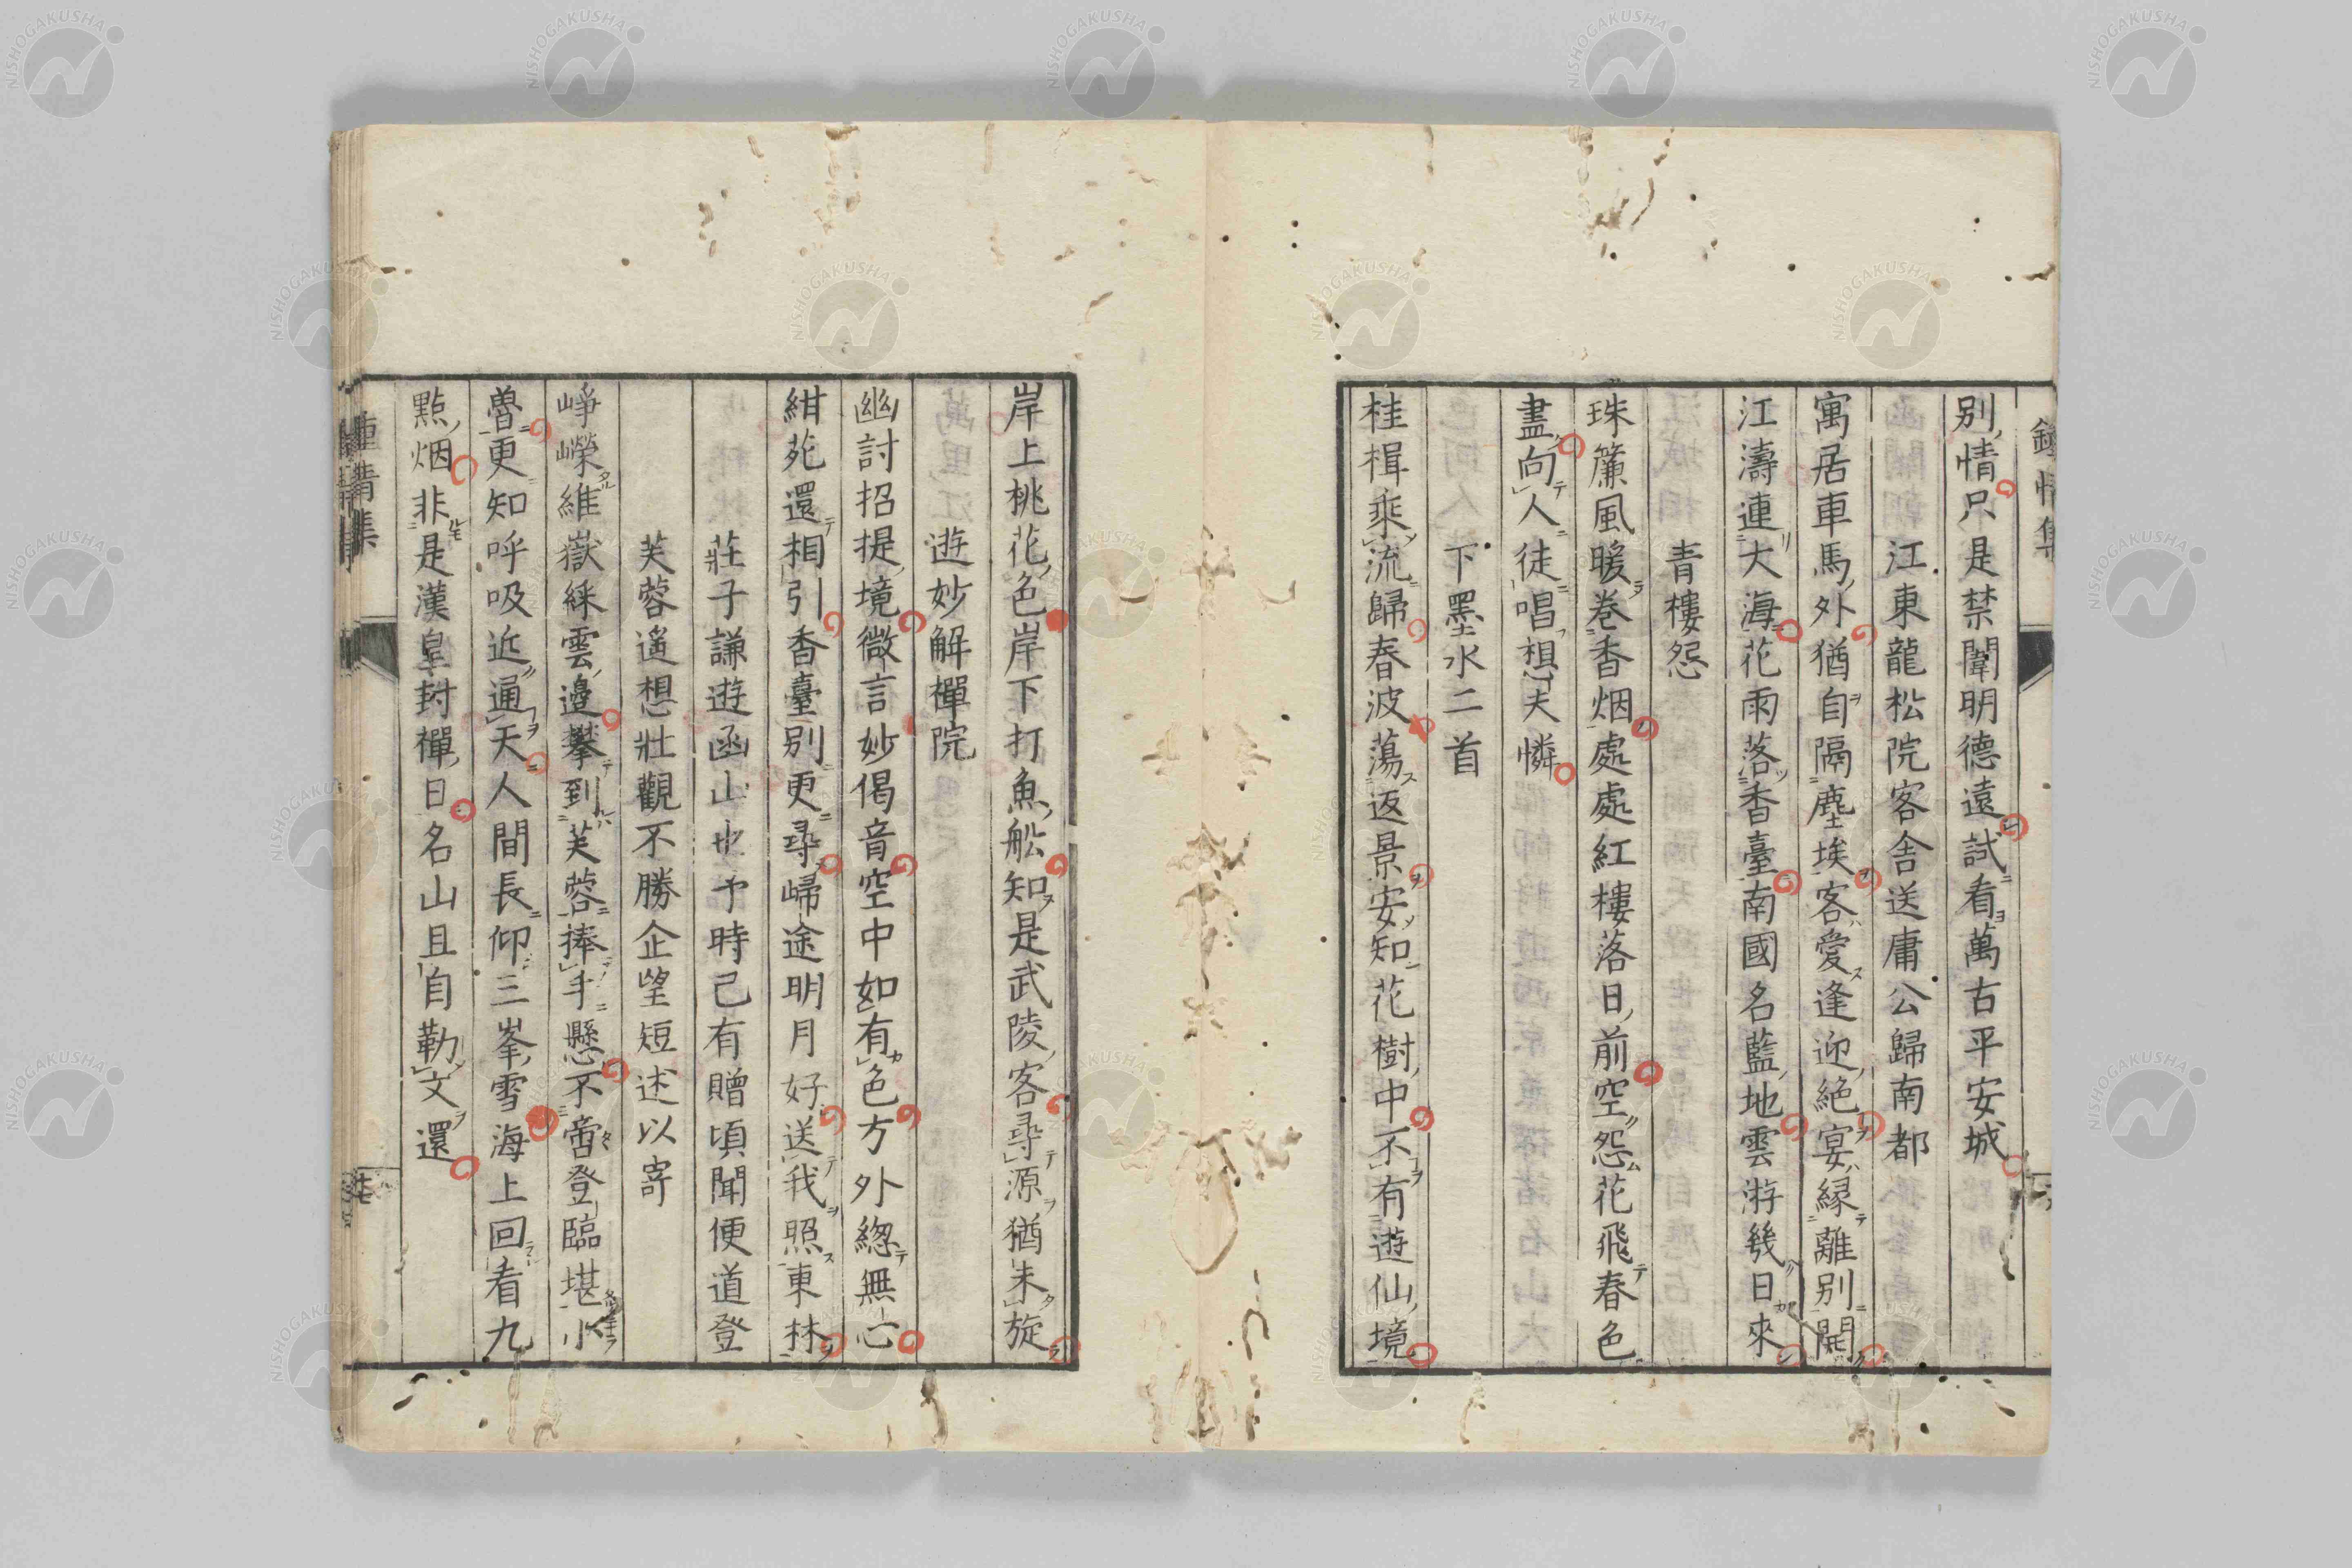 別情只是禁闈明德遠試看萬古平安城
江東龍松院客舍送庸公歸南都
寓居車馬外猶自隔塵埃客愛逢迎絕宴緣離別開
江濤連大海花雨落香臺南國名藍地雲游幾日來
青樓怨
珠簾風暖卷香烟處處紅樓落日前空怨花飛春色
盡向人徒唱想夫憐
下墨水二首
桂楫乘流歸春波蕩返景安知花樹中不有遊仙境
岸上桃花色岸下打魚舩知是武陵客尋源猶未旋
遊妙解禪院
幽討招提境微言妙偈音空中如有色方外總無心
紺苑還相引香臺別更尋歸途明月好送我照東林
莊子謙遊函山也予時已有贈頃聞便道登
芙蓉遙想壯觀不勝企望短述以寄
崢嶸維嶽綵雲邊攀到芙蓉捧手懸不啻登臨堪小
魯更知呼吸近通天人間長仰三峯雪海上回看九
點烟非是漢皇封禪日名山且自勒文還
NISHOGAKUSHA